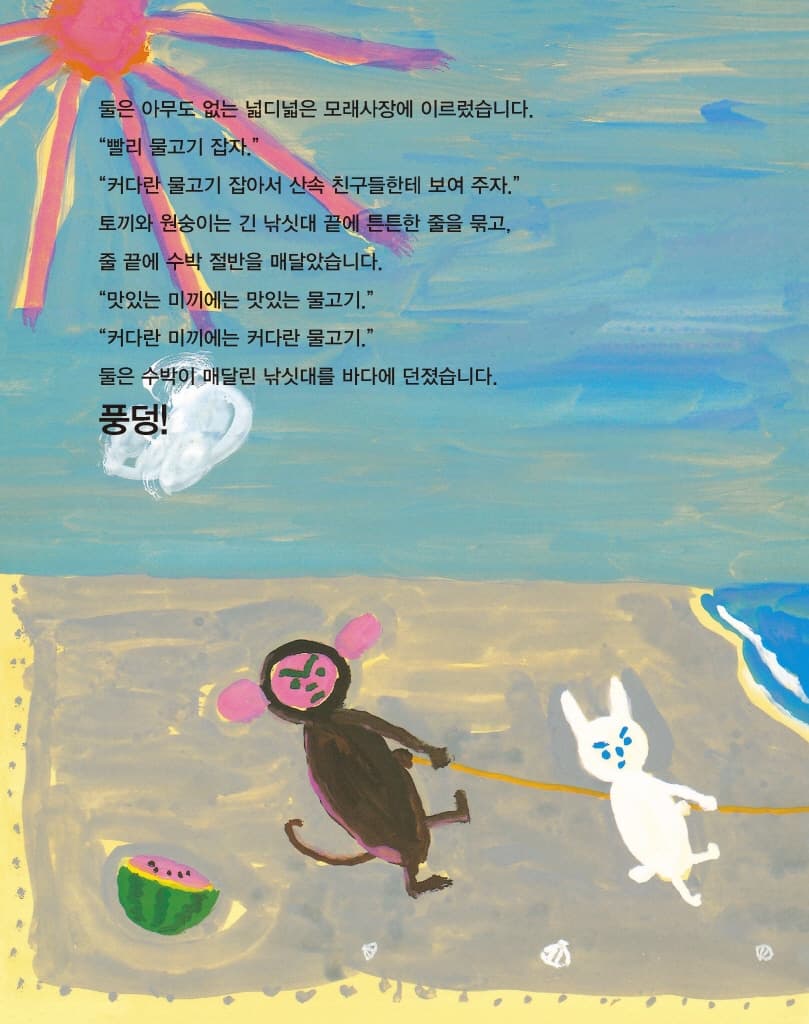 둘은 아무도 없는 넓디넓은 모래사장에 이르렀습니다.
“빨리 물고기 잡자.”
“커다란 물고기 잡아서 산속 친구들한테 보여 주자.”
토끼와 원숭이는 긴 낚싯대 끝에 튼튼한 줄을 묶고,
줄 끝에 수박 절반을 매달았습니다.
“맛있는 미끼에는 맛있는 물고기.”
“커다란 미끼에는 커다란 물고기.”
둘은 수박이 매달린 낚싯대를 바다에 던졌습니다.
풍덩!